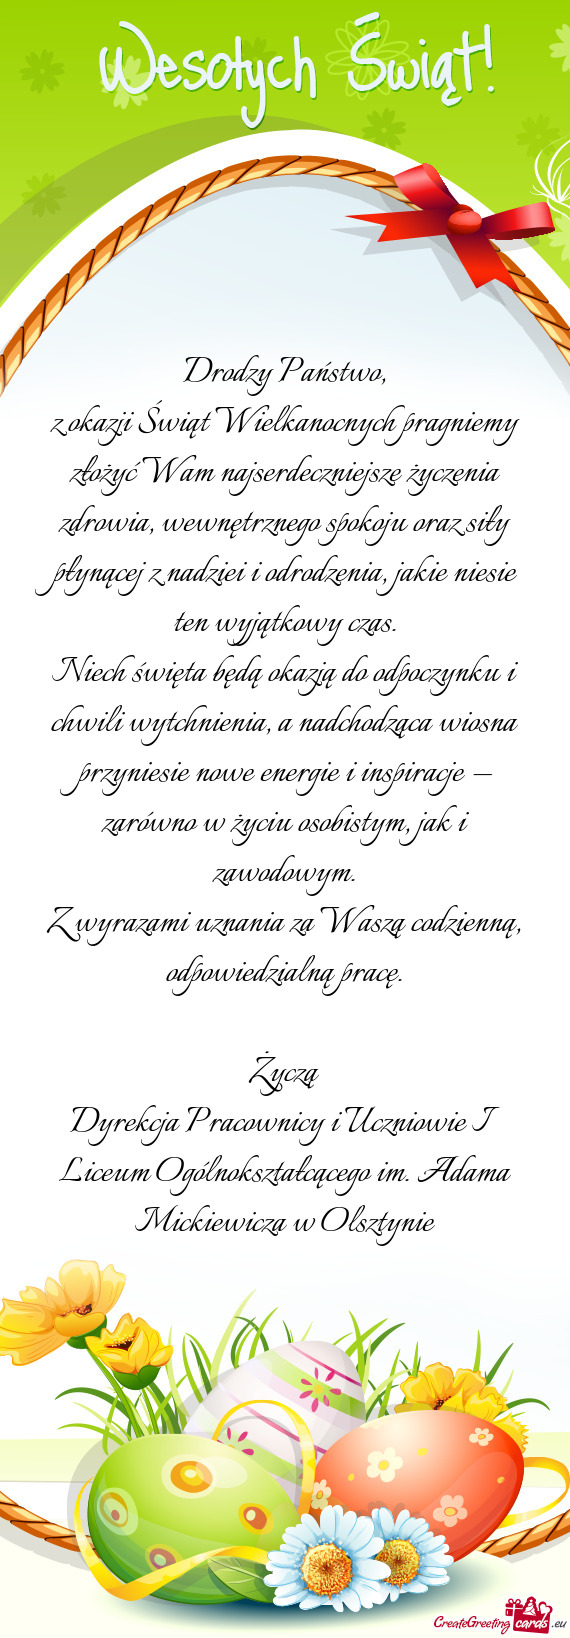 Wesołych Świąt!
Drodzy Państwo,
z okazji Świąt Wielkanocnych pragniemy
złożyć Wam najserdeczniejsze życzenia
zdrowia, wewnętrznego spokoju oraz siły
płynącej z nadziei i odrodzenia, jakie niesie
ten wyjątkowy czas.
Niech święta będą okazją do odpoczynku i
chwili wytchnienia, a nadchodząca wiosna
przyniesie nowe energie i inspiracje –
zarówno w życiu osobistym, jak i
zawodowym.
Z wyrazami uznania za Waszą codzienną,
odpowiedzialną pracę.
Życzą
Dyrekcja Pracownicy i Uczniowie I
Liceum Ogólnokształcącego im. Adama
Mickiewicza w Olsztynie
CreateGreeting cards .eu